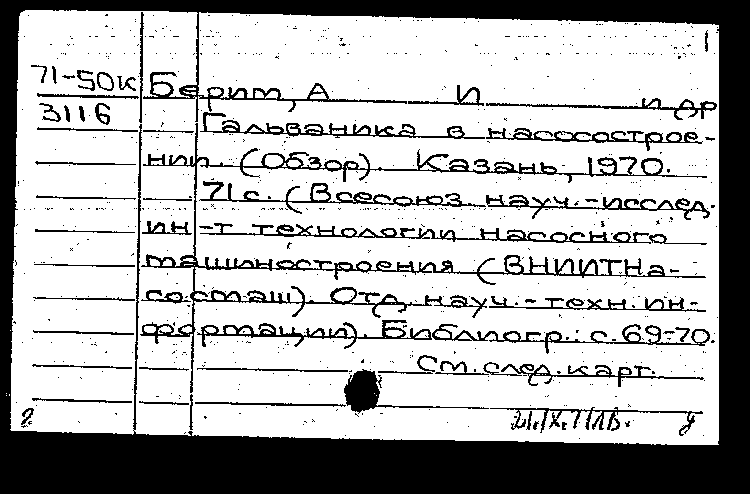 1
71-50к Берим, А И и др
3116 Гальваника в насосострое-
нии. (Обзор). Казань, 1970.
71 с. (Всесоюз. науч.-исслед.
ин-т технологии насосного
машиностроения (ВНИИТНа-
сосмаш). Отд. науч.-техн. ин-
формации). Библиогр.: с. 69-70.
См. след. карт.